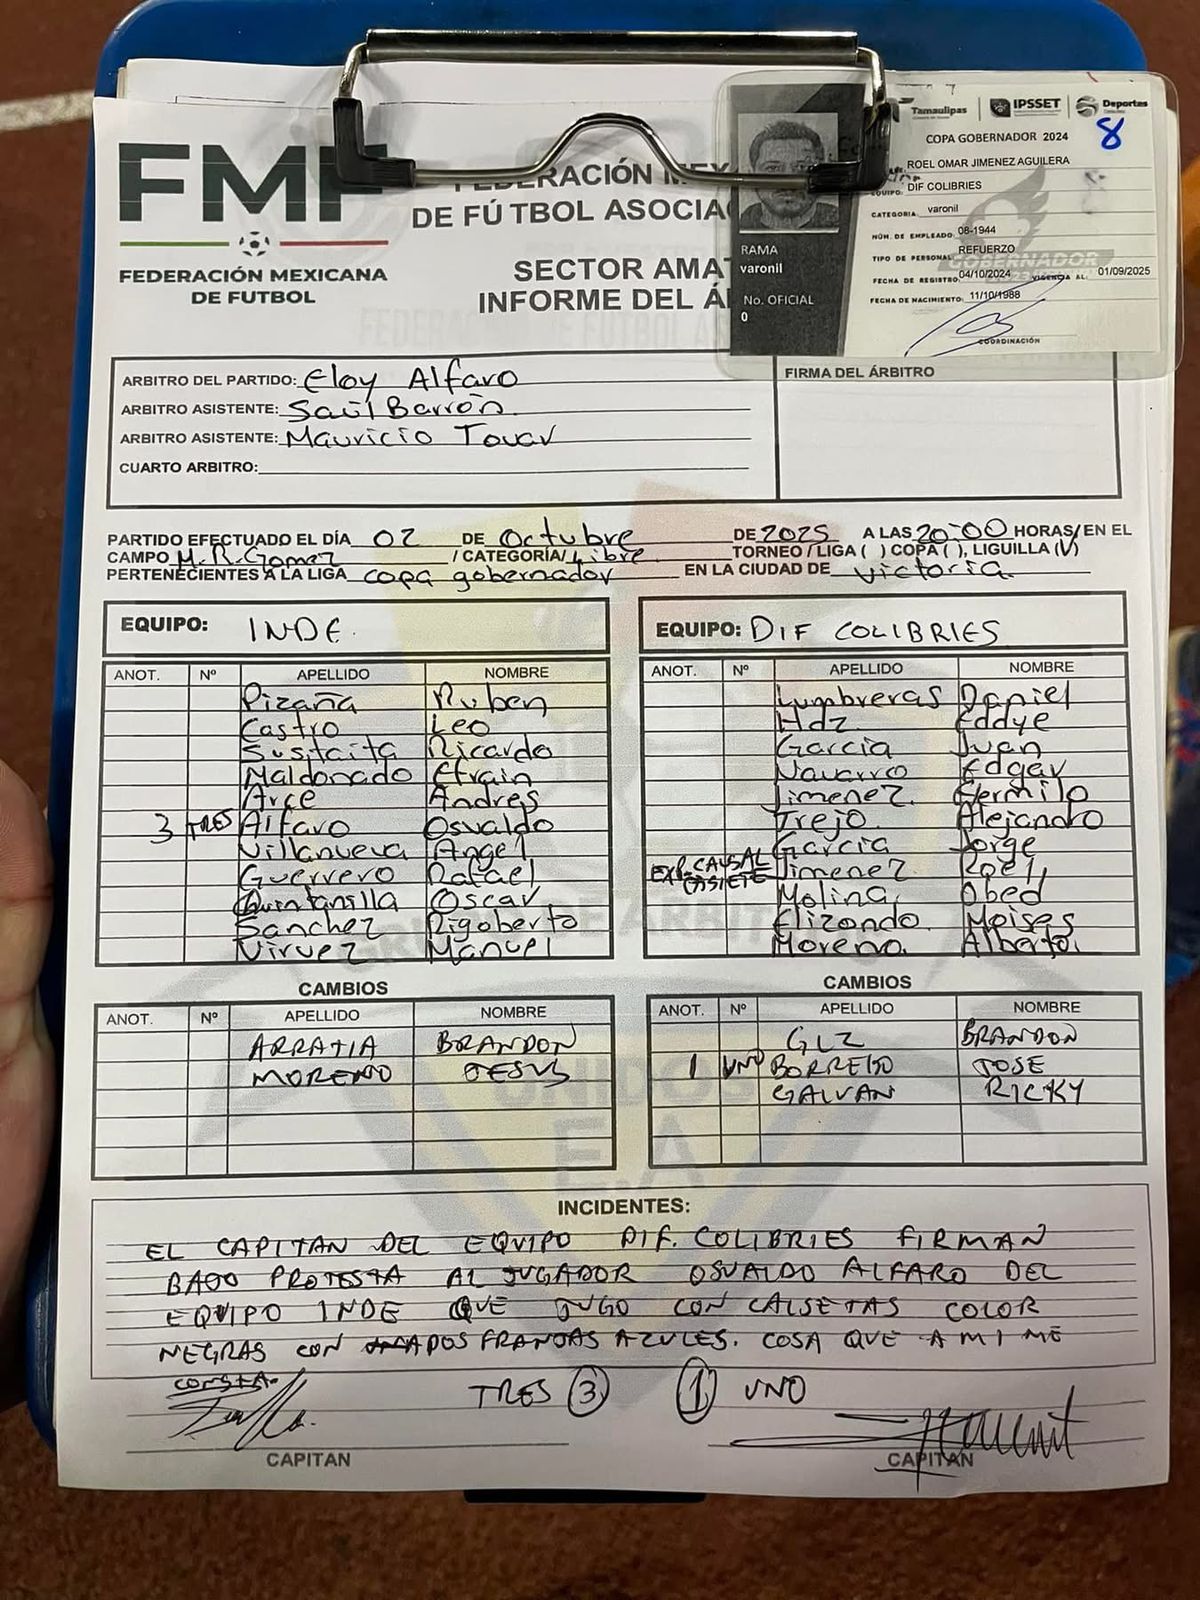 FMF
FEDERACIÓN MEXICANA
DE FUTBOL
FEDERACIÓN MEX
DE FÚTBOL ASOCIA
SECTOR AMA
INFORME DEL Á
Tamaulipas IPSSET Deportes
COPA GOBERNADOR 2024
8
ROEL OMAR JIMENEZ AGUILERA
EQUIPO: DIF COLIBRIES
CATEGORIA: varonil
NÚM. DE EMPLEADO: 08-1944
TIPO DE PERSONAL: REFUERZO
FECHA DE REGISTRO: 04/10/2024 VIGENCIA AL: 01/09/2025
FECHA DE NACIMIENTO: 11/10/1988
COORDINACIÓN
RAMA
varonil
No. OFICIAL
0
ARBITRO DEL PARTIDO: Eloy Alfaro
ARBITRO ASISTENTE: Saúl Barrón
ARBITRO ASISTENTE: Mauricio Tovar
CUARTO ARBITRO:
FIRMA DEL ÁRBITRO
PARTIDO EFECTUADO EL DÍA 02 DE Octubre DE 2025 A LAS 20:00 HORAS/EN EL
CAMPO M.R.Gomez / CATEGORÍA/ Libre TORNEO / LIGA ( ) COPA ( ), LIGUILLA (V)
PERTENECIENTES A LA LIGA copa gobernador EN LA CIUDAD DE victoria
EQUIPO: INDE
ANOT. Nº APELLIDO NOMBRE
Pizaña Ruben
Castro Leo
Sustaita Ricardo
Maldonado Efrain
Arce Andres
3 TRES Alfaro Osvaldo
Villanueva Angel
Guerrero Rafael
Quintanilla Oscar
Sanchez Rigoberto
Viruez Manuel
EQUIPO: DIF COLIBRIES
ANOT. Nº APELLIDO NOMBRE
Lumbreras Daniel
Hdz Eddye
Garcia Juan
Navarro Edgar
Jimenez Hermilo
Trejo Alejandro
Garcia Jorge
EXP. CAUSAL Jimenez Roel
Molina Obed
Elizondo Moises
Moreno Alberto
CAMBIOS
ANOT. Nº APELLIDO NOMBRE
ARRATIA BRANDON
MORENO JESUS
CAMBIOS
ANOT. Nº APELLIDO NOMBRE
GLZ BRANDON
1 UNO BORREGO JOSE
GALVAN RICKY
UNIDOS
E.A
INCIDENTES:
EL CAPITAN DEL EQUIPO DIF. COLIBRIES FIRMAN
BAJO PROTESTA AL JUGADOR OSVALDO ALFARO DEL
EQUIPO INDE QUE JUGO CON CALSETAS COLOR
NEGRAS CON FRANJAS AZULES. COSA QUE A MI ME
CONSTA.
TRES 3 1 UNO
CAPITAN CAPITAN